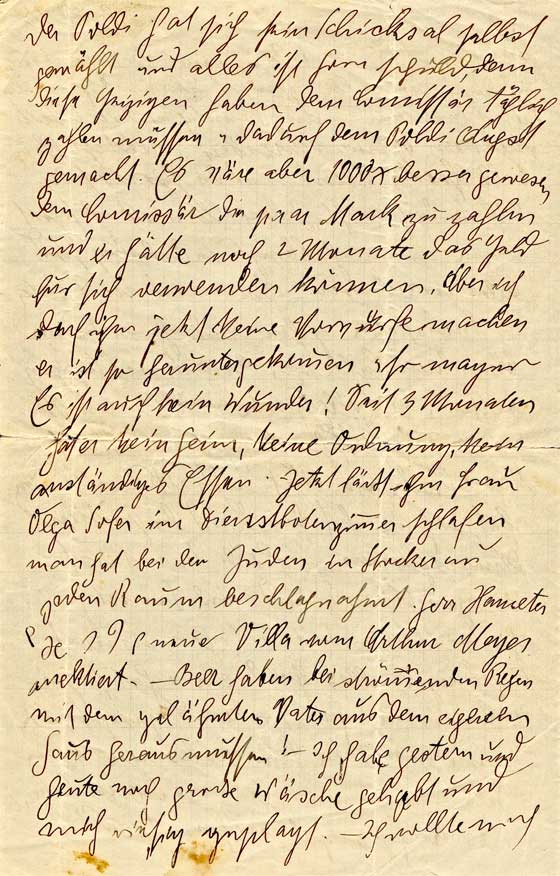 Der Poldi hat sich sein Schicksal selbst
gewählt und alles ist ihm schuld, denn
diese geizigen haben dem Comissär täglich
zahlen müssen u dadurch dem Poldi Angst
gemacht. Es wäre aber 1000x besser gewesen
dem Comissär die paar Mark zu zahlen
und er hätte noch 2 Monate das Geld
für sich verwenden können. Aber ich
darf ihm jetzt keine Vorwürfe machen
er ist so heruntergekommen u. so mager
Es ist auch kein Wunder! Seit 3 Monaten
hat er kein Heim, keine Ordnung, kein
anständiges Essen. Jetzt läßt ihm Frau
Olga Sofer im Dienstbotenzimmer schlafen
man hat bei den Juden in Stockerau
jeden Raum beschlagnahmt. Herr Hameter
neue Villa vom Arthur Meyer
anektiert. – Beer haben bei strömenden Regen
mit dem gelähmten Vater aus dem eigenen
Haus heraus müssen! – Ich habe gestern und
heute noch große Wäsche gehabt und
mich riesig geplagt. – Ich wollte mich